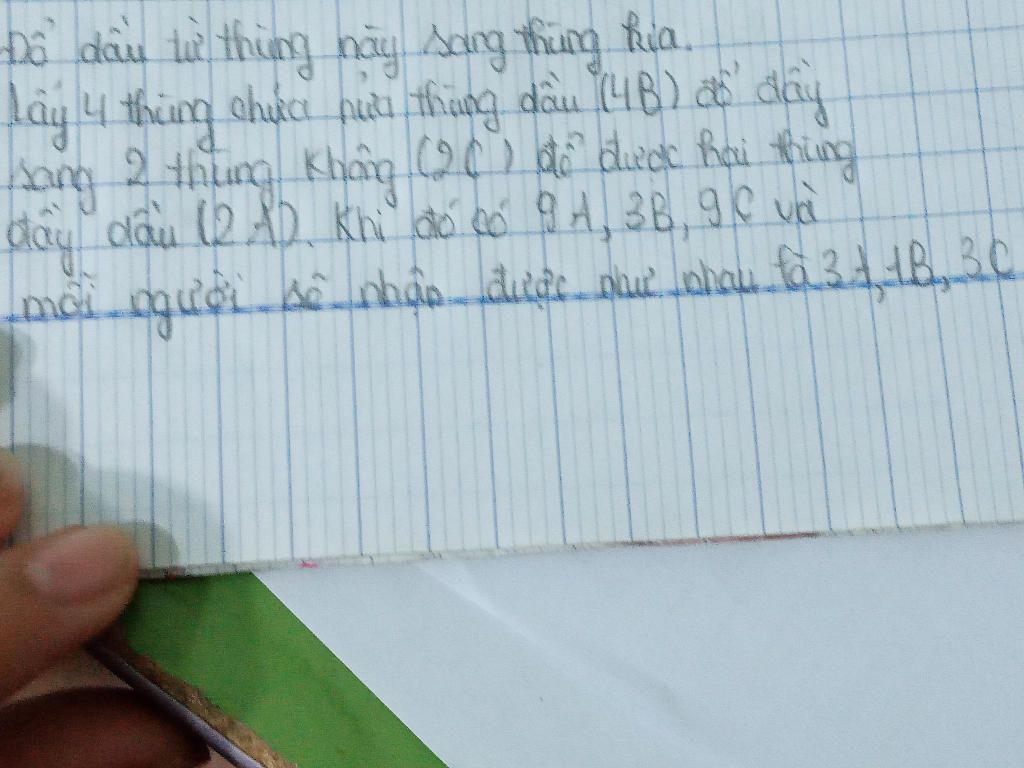 Đổ dầu từ thùng này sang thùng kia.
Lấy 4 thùng chứa nửa thùng dầu (4B) đổ đầy
sang 2 thùng không (2C) đổ được hai thùng
đầy dầu (2A). Khi đó có 9A, 3B, 9C và
mỗi người số nhận được như nhau là 3A, 1B, 3C